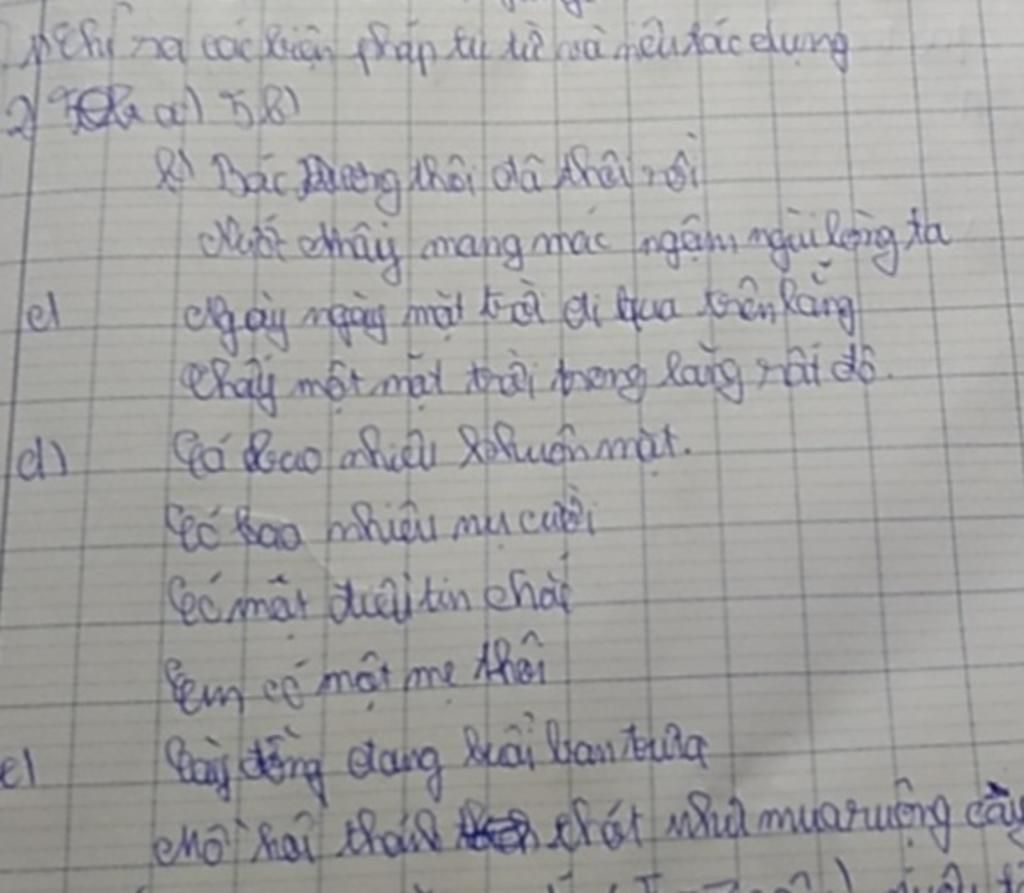 chỉ ra các biện pháp tu từ và nêu tác dụng
2) a) 5,8)
b) Bác Dương thôi đã thôi rồi
Nước mây mang mác ngậm ngùi lòng ta
c) Ngày ngày mặt trời đi qua trên lăng
Thấy một mặt trời trong lăng rất đỏ.
d) Có bao nhiêu khuôn mặt.
Có bao nhiêu nụ cười
Có một điều tin chắc
Em có một mẹ thôi
e) Cày đồng đang buổi ban trưa
Mồ hôi thánh thót như mưa ruộng cày